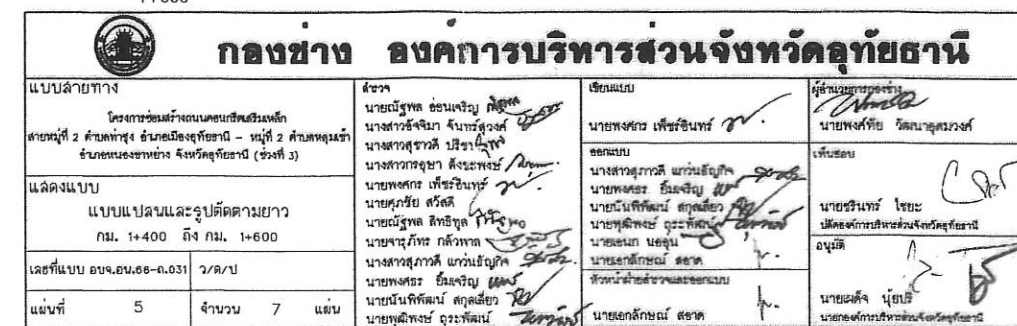 กองช่าง องค์การบริหารส่วนจังหวัดอุทัยธานี
แบบสายทาง
โครงการซ่อมสร้างถนนคอนกรีตเสริมเหล็ก
สายหมู่ที่ 2 ตำบลท่าซุง อำเภอเมืองอุทัยธานี - หมู่ที่ 2 ตำบลหลุมเข้า
อำเภอหนองขาหย่าง จังหวัดอุทัยธานี (ช่วงที่ 3)
แสดงแบบ
แบบแปลนและรูปตัดตามยาว
กม. 1+400 ถึง กม. 1+600
เลขที่แบบ อบจ.อน.66-ถ.031 ว/ด/ป
แผ่นที่ 5 จำนวน 7 แผ่น
สำรวจ
นายณัฐพล อ่อนเจริญ
นางสาวอัจจิมา จันทร์สุวงศ์
นางสาวสุชาวดี ปรีชา
นางสาวกรอุษา
นายพงศกร เพ็ชร์อินทร์
นายศุภชัย สวัสดี
นายณัฐพล สิทธิทูล
นายจารุภัทร กล้วพาล
นางสาวสุภาวดี แกว่นธัญกิจ
นายพงศธร ยิ้มเจริญ
นายนันพิพัฒน์ สกุลเสี่ยว
นายพุฒิพงษ์ ถุระพัฒน์
เขียนแบบ
นายพงศกร เพ็ชร์อินทร์
ออกแบบ
นางสาวสุภาวดี แกว่นธัญกิจ
นายพงศธร ยิ้มเจริญ
นายนันพิพัฒน์ สกุลเสี่ยว
นายพุฒิพงษ์ ถุระพัฒน์
นายเอนก นออุ่น
นายเอกลักษณ์ สอาด
หัวหน้าฝ่ายสำรวจและออกแบบ
นายเอกลักษณ์ สอาด
ผู้อำนวยการกองช่าง
นายพงค์ทัย วัฒนาอุดมวงศ์
เห็นชอบ
นายชรินทร์ ไชยะ
ปลัดองค์การบริหารส่วนจังหวัดอุทัยธานี
อนุมัติ
นายเผด็จ นุ้ยปรี
นายกองค์การบริหารส่วนจังหวัดอุทัยธานี